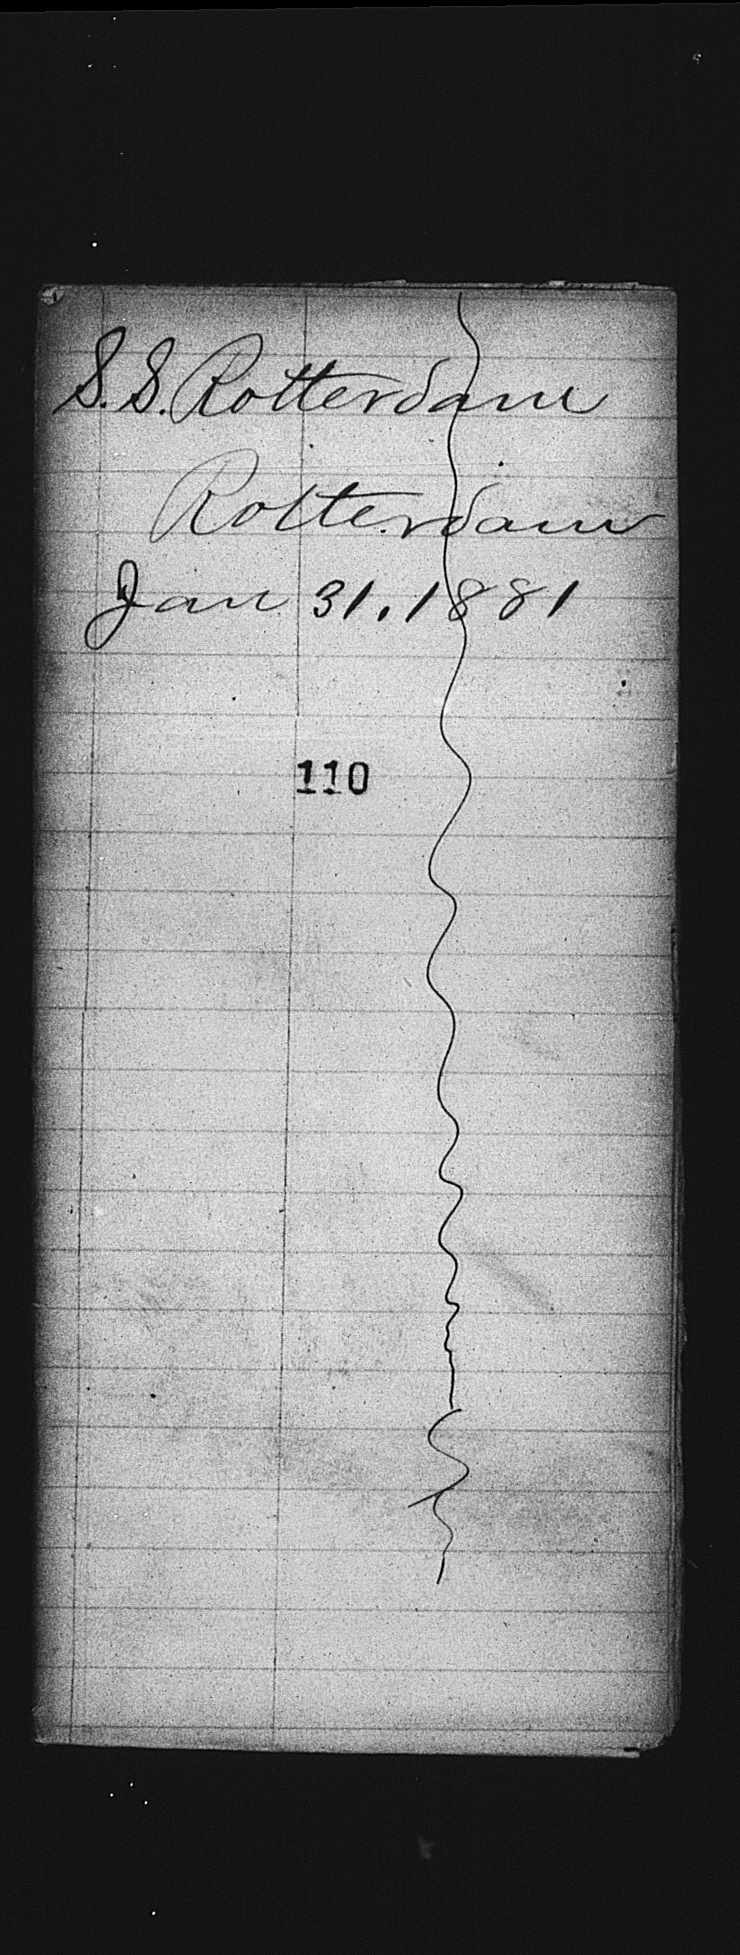 S.S. Rotterdam
Rotterdam
Jan 31. 1881
110